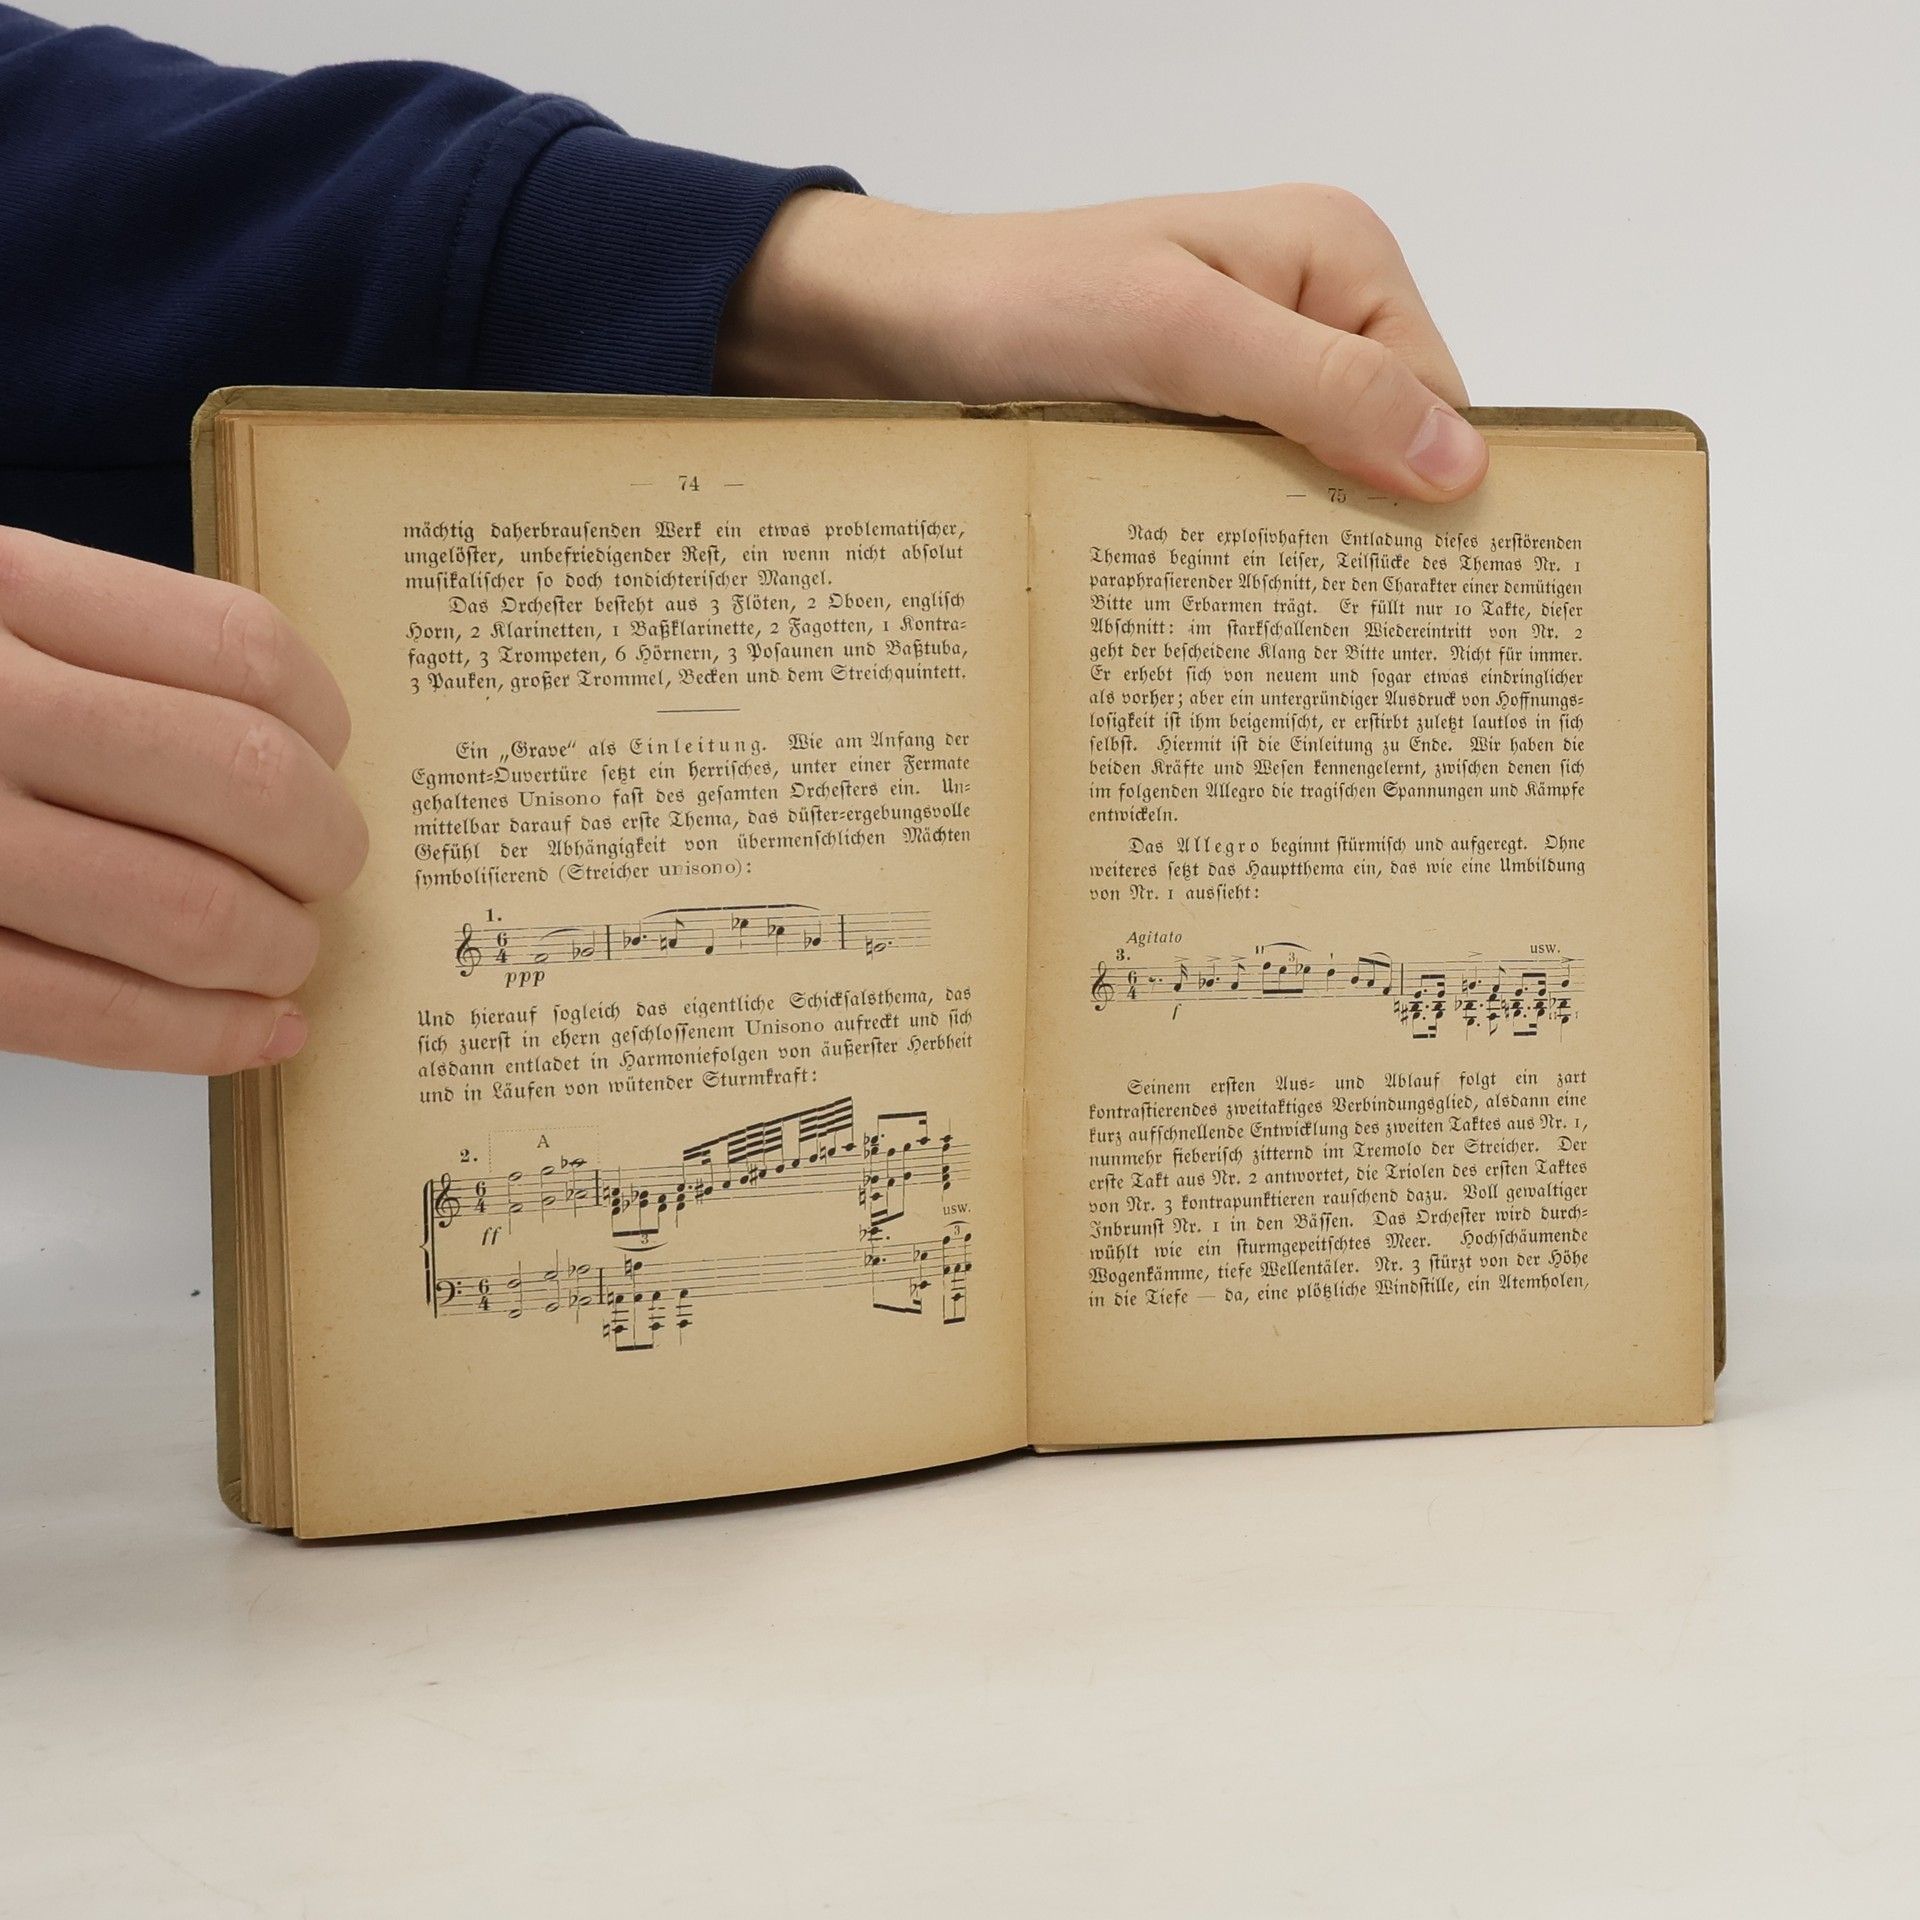 — 74 —
mächtig daherbrausenden Werk ein etwas problematischer,
ungelöster, unbefriedigender Rest, ein wenn nicht absolut
musikalischer so doch tondichterischer Mangel.
Das Orchester besteht aus 3 Flöten, 2 Oboen, englisch
Horn, 2 Klarinetten, 1 Baßklarinette, 2 Fagotten, 1 Kontra-
fagott, 3 Trompeten, 6 Hörnern, 3 Posaunen und Baßtuba,
3 Pauken, großer Trommel, Becken und dem Streichquintett.
Ein „Grave“ als Einleitung. Wie am Anfang der
Egmont-Ouvertüre setzt ein herrisches, unter einer Fermate
gehaltenes Unisono fast des gesamten Orchesters ein. Un-
mittelbar darauf das erste Thema, das düster-ergebungsvolle
Gefühl der Abhängigkeit von übermenschlichen Mächten
symbolisierend (Streicher unisono):
1.
6
4
ppp
Und hierauf sogleich das eigentliche Schicksalsthema, das
sich zuerst in ehern geschlossenem Unisono aufreckt und sich
alsdann entladet in Harmoniefolgen von äußerster Herbheit
und in Läufen von wütender Sturmkraft:
A
2.
6
4
ff
3
usw.
3
6
4
— 75 —
Nach der explosivhaften Entladung dieses zerstörenden
Themas beginnt ein leiser, Teilstücke des Themas Nr. 1
paraphrasierender Abschnitt, der den Charakter einer demütigen
Bitte um Erbarmen trägt. Er füllt nur 10 Takte, dieser
Abschnitt: im starkschallenden Wiedereintritt von Nr. 2
geht der bescheidene Klang der Bitte unter. Nicht für immer.
Er erhebt sich von neuem und sogar etwas eindringlicher
als vorher; aber ein untergründiger Ausdruck von Hoffnungs-
losigkeit ist ihm beigemischt, er erstirbt zuletzt lautlos in sich
selbst. Hiermit ist die Einleitung zu Ende. Wir haben die
beiden Kräfte und Wesen kennengelernt, zwischen denen sich
im folgenden Allegro die tragischen Spannungen und Kämpfe
entwickeln.
Das Allegro beginnt stürmisch und aufgeregt. Ohne
weiteres setzt das Hauptthema ein, das wie eine Umbildung
von Nr. 1 aussieht:
Agitato
3.
6
4
f
3
usw.
Seinem ersten Aus- und Ablauf folgt ein zart
kontrastierendes zweitaktiges Verbindungsglied, alsdann eine
kurz aufschnellende Entwicklung des zweiten Taktes aus Nr. 1,
nunmehr fieberisch zitternd im Tremolo der Streicher. Der
erste Takt aus Nr. 2 antwortet, die Triolen des ersten Taktes
von Nr. 3 kontrapunktieren rauschend dazu. Voll gewaltiger
Inbrunst Nr. 1 in den Bässen. Das Orchester wird durch-
wühlt wie ein sturmgepeitschtes Meer. Hochschäumende
Wogenkämme, tiefe Wellentäler. Nr. 3 stürzt von der Höhe
in die Tiefe — da, eine plötzliche Windstille, ein Atemholen,